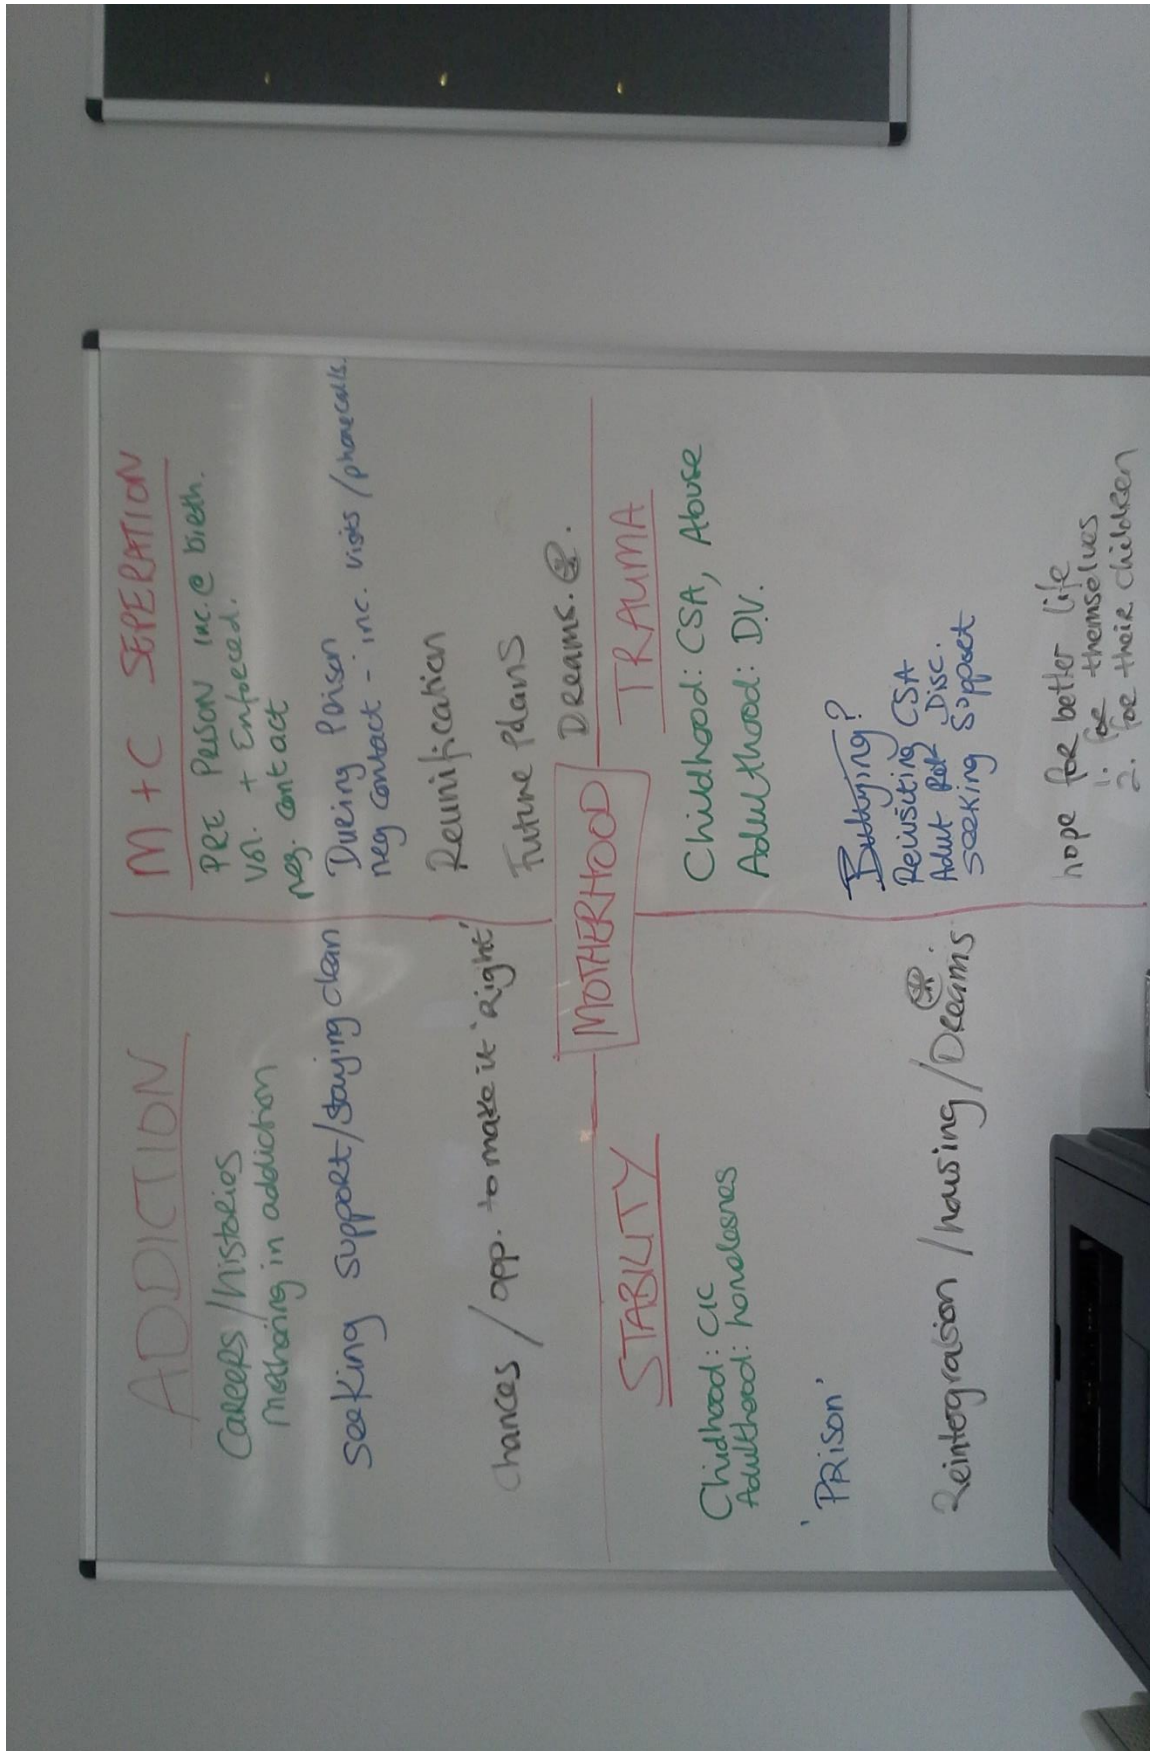 ADDICTION
CAREERS/histories
Mothering in addiction
Seeking support/staying clean
Chances / opp. to make it 'Right'
M + C SEPERATION
PRE PRISON inc. @ birth.
Vol. + Enforced.
neg. contact
During Prison
neg contact - inc. visits/phonecalls.
Reunification
Future Plans
Dreams.
MOTHERHOOD
STABILITY
Childhood: CIC
Adulthood: homelesnes
'PRISON'
Reintergration/housing/Dreams
TRAUMA
Childhood: CSA, Abuse
Adulthood: D.V.
Bullying?
Revisiting CSA
Adult Disc.
Seeking Support
hope for better life
1. for themselves
2. for their children